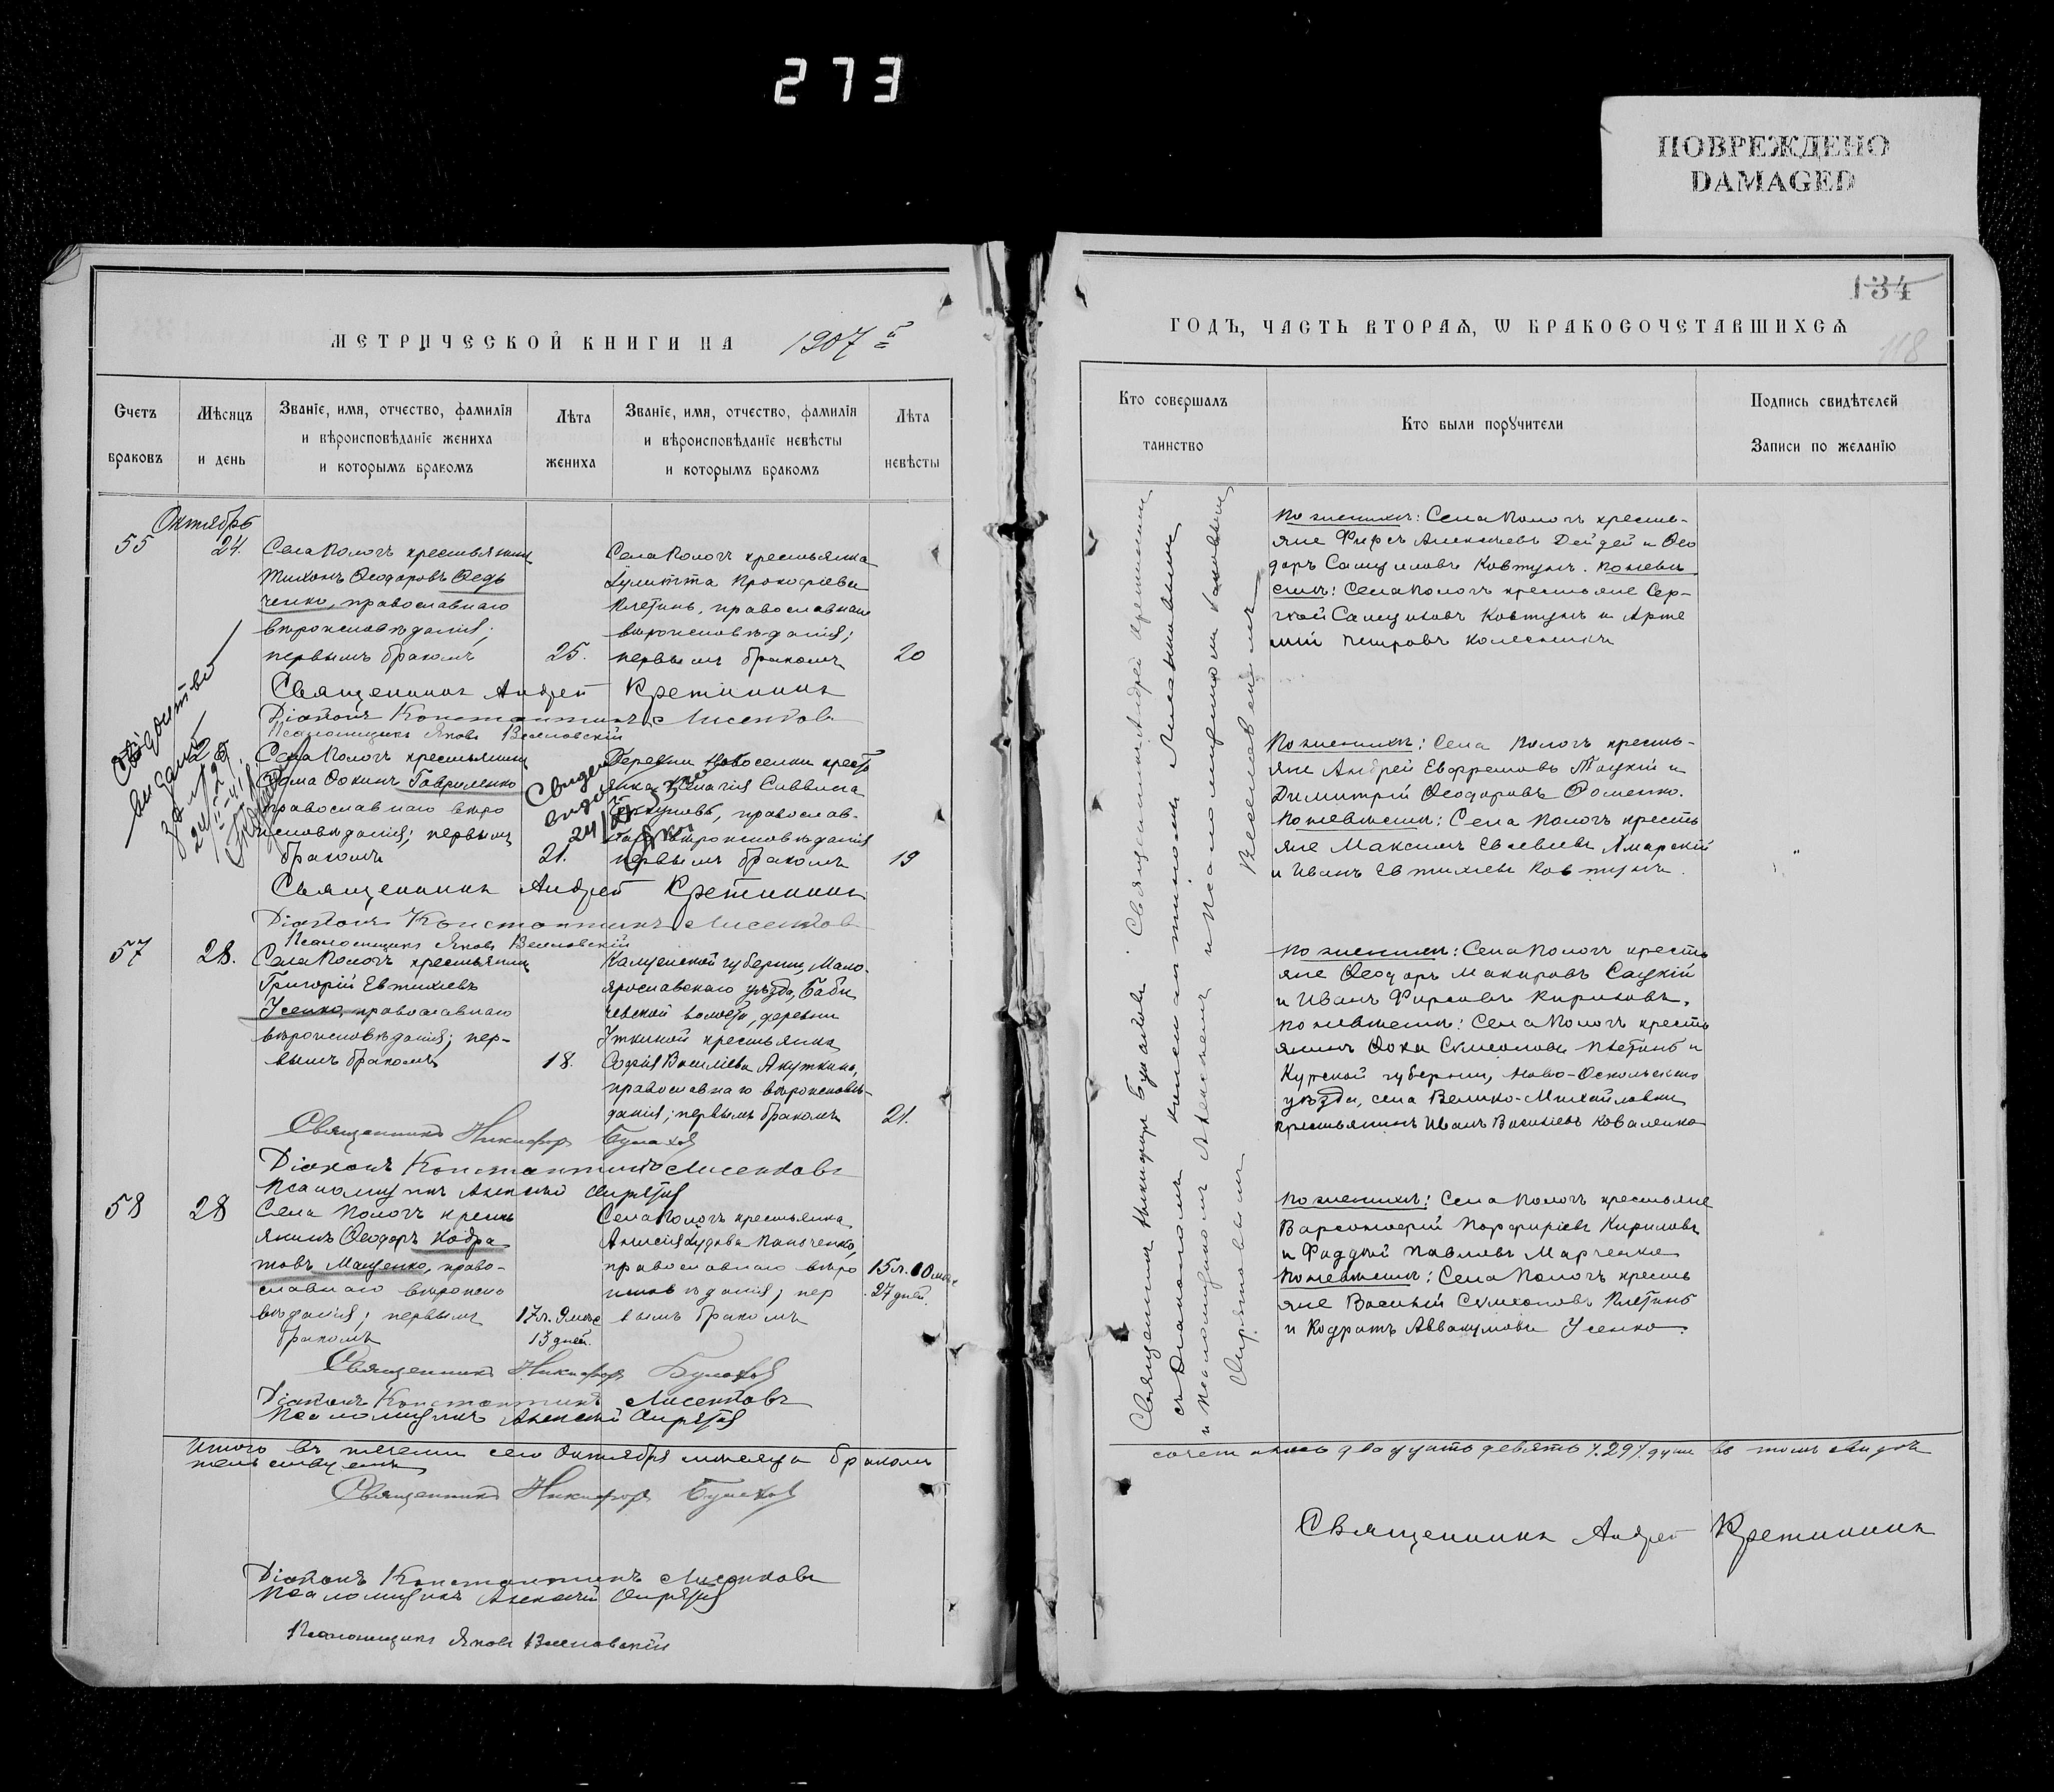 273
ПОВРЕЖДЕНО
DAMAGED
МЕТРИЧЕСКОЙ КНИГИ НА 1907 й
Счетъ браковъ
Мѣсяцъ и день
Званіе, имя, отчество, фамилія
и вѣроисповѣданіе жениха
и которымъ бракомъ
Лѣта жениха
Званіе, имя, отчество, фамилія
и вѣроисповѣданіе невѣсты
и которымъ бракомъ
Лѣта невѣсты
Октябрь
55
24.
Села Пологъ крестьянинъ
Тихонъ Ѳеодоровъ Ѳедь
ченко, православнаго
вѣроисповѣданія;
первымъ бракомъ
25.
Села Пологъ крестьянка
Іулитта Прокофіева
Плетинь, православнаго
вѣроисповѣданія;
первымъ бракомъ
20
Священникъ Андрей Кретининъ
Діаконъ Константинъ Лисенковъ
Псаломщикъ Яковъ Веселовскій
выдано
Села Пологъ крестьянинъ
Ѳома Ѳокинъ Гавриленко
православнаго вѣро
исповѣданія; первымъ
бракомъ
21.
Деревни Новоселки крестъ
янка Пелагія Саввина
православ-
вѣроисповѣданія
первымъ бракомъ
19
Священникъ Андрей Кретининъ
Діаконъ Константинъ Лисенковъ
Псаломщикъ Яковъ Веселовскій
57
28.
Села Пологъ крестьянинъ
Григорій Евтихіевъ
Усенко, православнаго
вѣроисповѣданія; пер-
вымъ бракомъ
18.
Калужской губерніи, Мало-
ярославскаго уѣзда, Баби
чевской волости, деревни
Уткиной крестьянка
Софія Василіева Якуткина,
православнаго вѣроисповѣ-
данія; первымъ бракомъ
21.
Священникъ Никифоръ Булаховъ
Діаконъ Константинъ Лисенковъ
Псаломщикъ Алексѣй
58
28
Села Пологъ кресть
янинъ Ѳеодоръ Кодра
товъ Мащенко, право-
славнаго вѣроиспо
вѣданія; первымъ
бракомъ
17л. 9мѣс
13 дней.
Села Пологъ крестьянка
Анисія Іудова Панченко,
православнаго вѣро
исповѣданія; пер
вымъ бракомъ
15л. 10мѣс
27 дней.
Священникъ Никифоръ Булаховъ
Діаконъ Константинъ Лисенковъ
Псаломщикъ Алексѣй
Итого въ теченіи сего Октября мѣсяца бракомъ
Священникъ Никифоръ Булаховъ
Діаконъ Константинъ Лисенковъ
Псаломщикъ Алексѣй
Псаломщикъ Яковъ Веселовскій
134
118
ГОДЪ, ЧАСТЬ ВТОРАЯ, Ѡ БРАКОСОЧЕТАВШИХСЯ
Кто совершалъ таинство
Кто были порꙋчители
Подпись свидѣтелей
Записи по желанію
Священникъ Никифоръ Булаховъ. Священникъ Андрей Кретининъ
съ Діакономъ Константиномъ Лисенковымъ
и Псаломщикомъ Алексѣемъ и Псаломщикомъ Яковомъ
Веселовскимъ
По женихѣ: Села Пологъ кресть-
яне Фирсъ Алексѣевъ Дейдей и Ѳео
доръ Самуиловъ Ковтунъ. По невѣ
стѣ: Села Пологъ крестьяне Сер-
гѣй Самуиловъ Ковтунъ и Арте
мій Петровъ Колесникъ
По женихѣ: Села Пологъ кресть-
яне Андрей Евфремовъ Тацкій и
Димитрій Ѳеодоровъ Ѳоменко.
По невѣстѣ: Села Пологъ кресть
яне Максимъ Евсевіевъ Амарскій
и Иванъ Евтихіевъ Ковтунъ.
По женихѣ: Села Пологъ кресть
яне Ѳеодоръ Макаровъ Сацкій
и Иванъ Фирсовъ Кириловъ.
По невѣстѣ: Села Пологъ кресть
янинъ Ѳока Симеоновъ Плетинь и
Курской губерніи, Ново-Оскольскаго
уѣзда, села Велико-Михайловки
крестьянинъ Иванъ Василіевъ Коваленко
По женихѣ: Села Пологъ крестьяне
Варсонофій Порфиріевъ Кириловъ
и Фаддей Павловъ Марченко
По невѣстѣ: Села Пологъ кресть
яне Василій Симеоновъ Плетинь
и Кодратъ Аввакумовъ Усенко.
сочеталось двадцать девять /.29/. душъ въ томъ свидѣ
тельствуемъ
Священникъ Андрей Кретининъ